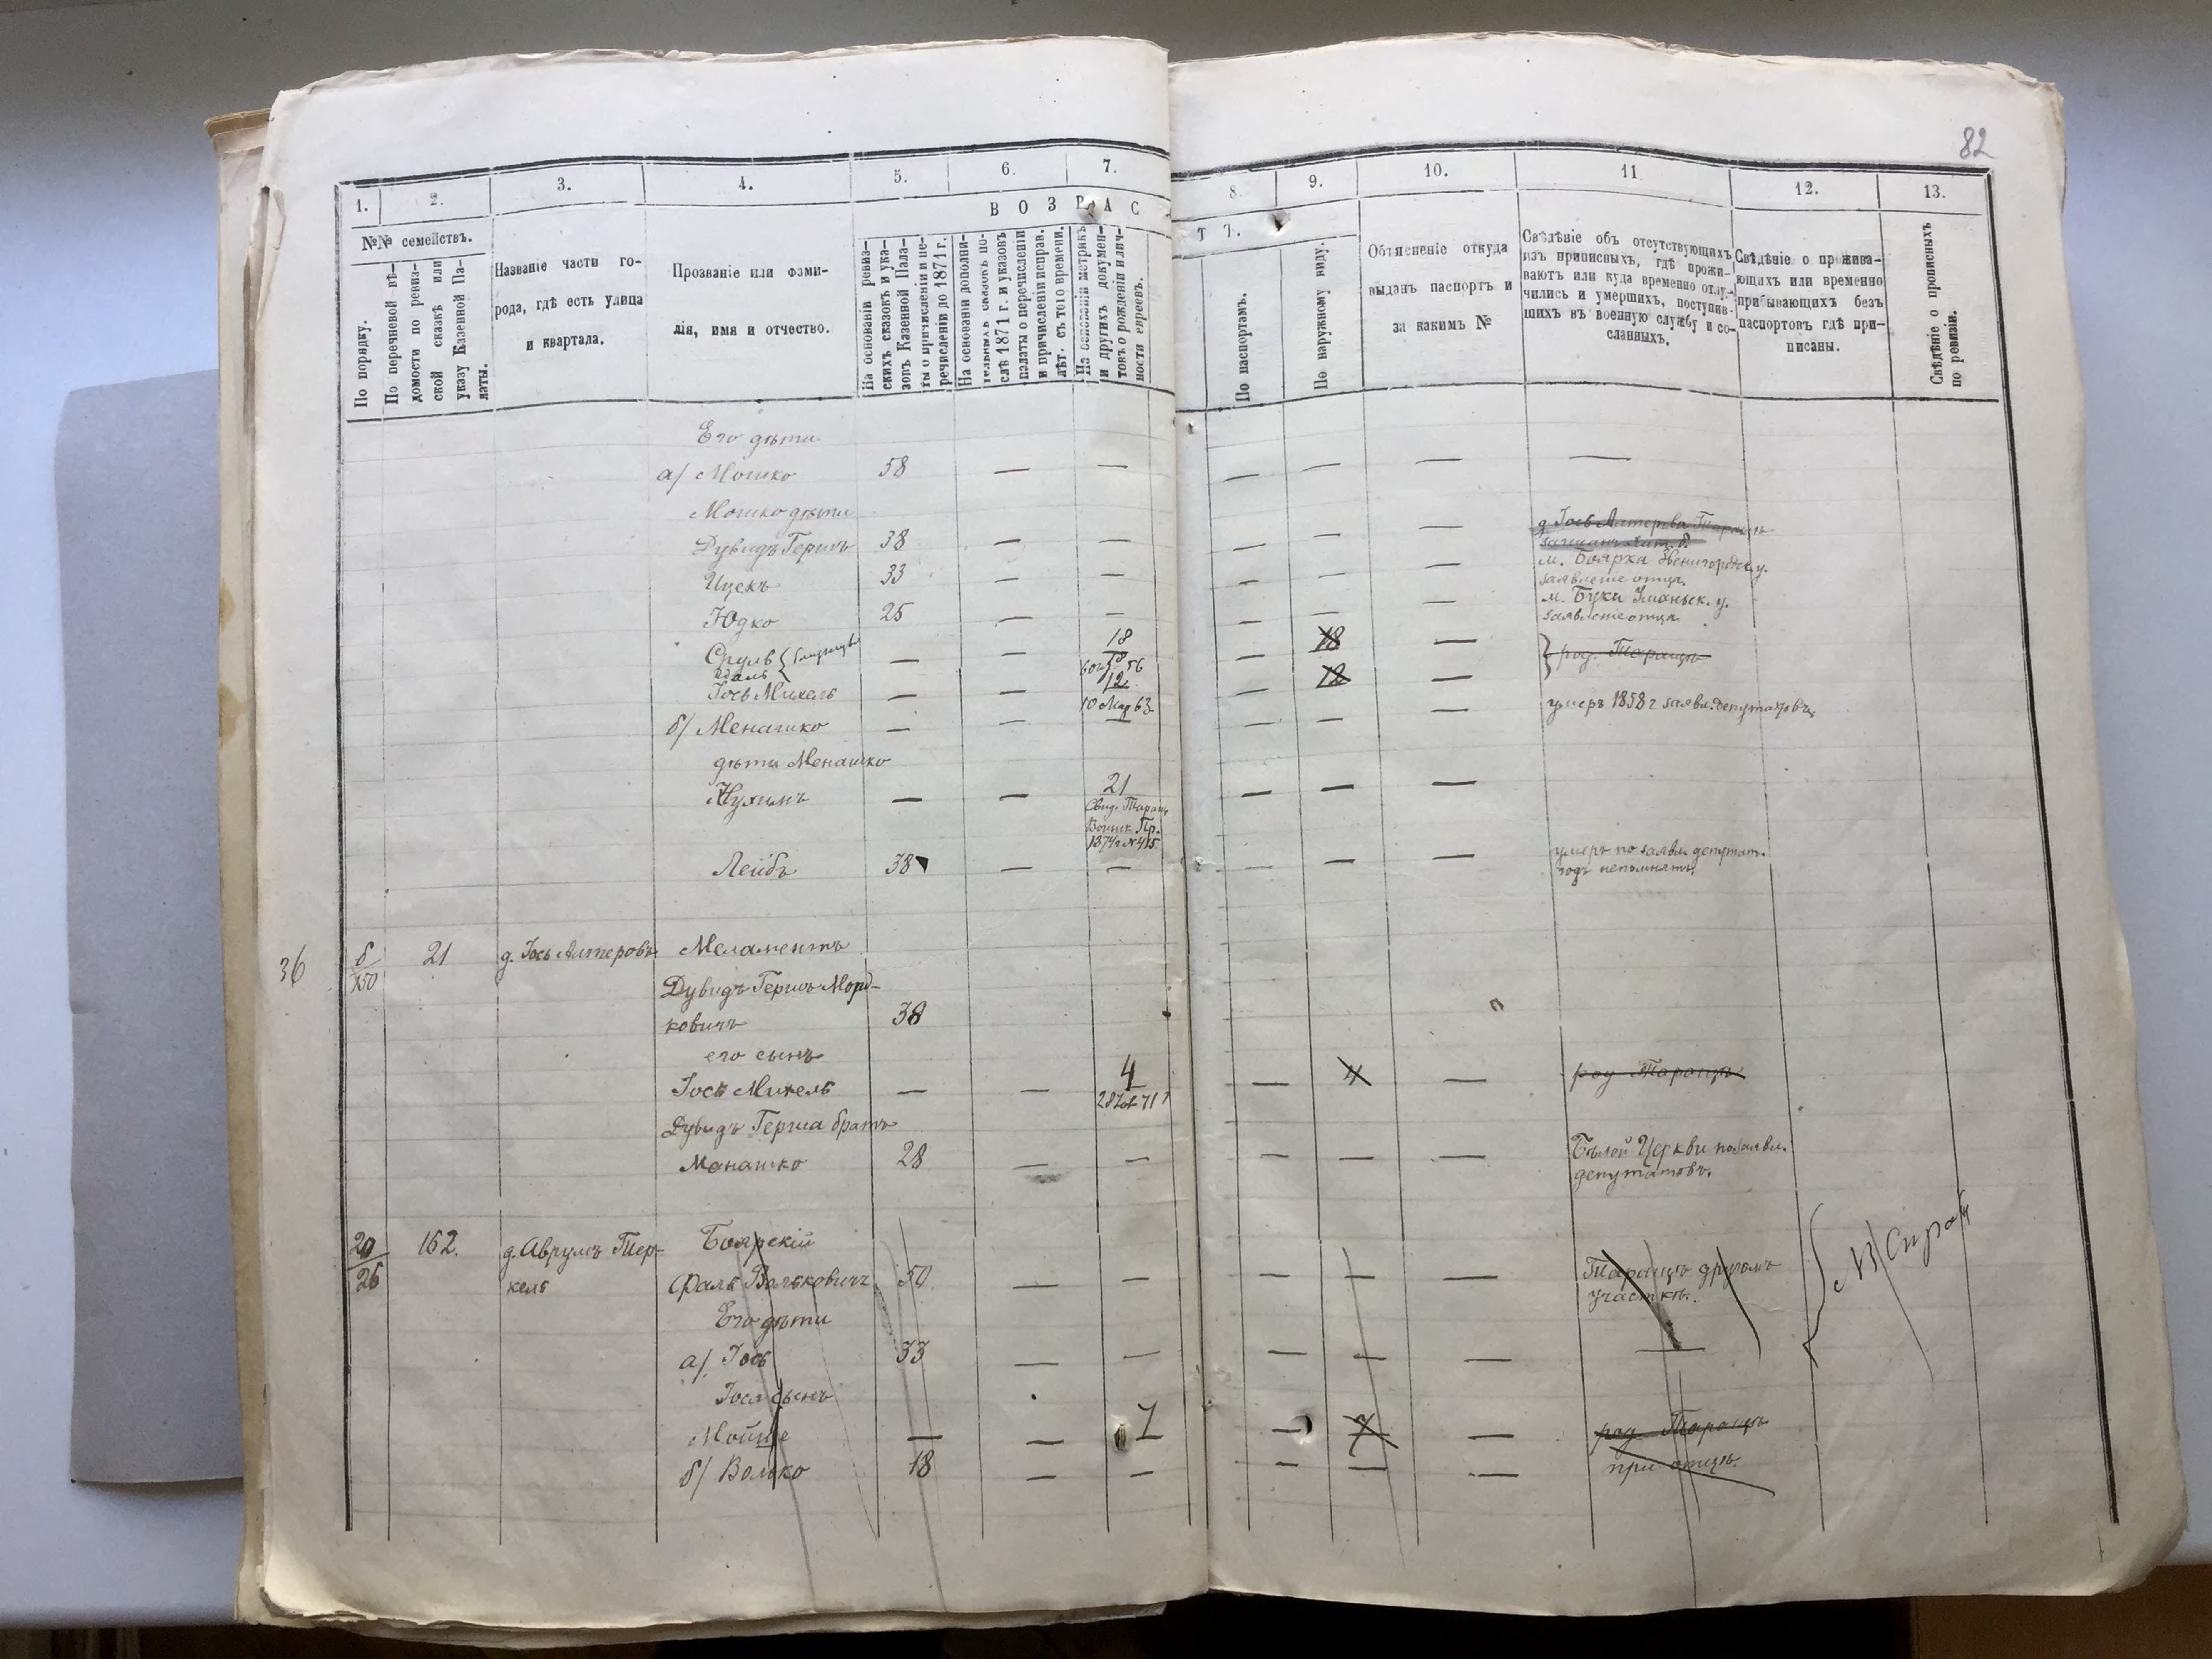 82
1.
2.
3.
4.
5.
6.
7.
8.
9.
10.
11.
12.
13.
№№ семействъ.
По порядку.
По перечневой вѣ-
домости по ревиз-
ской сказкѣ или
указу Казенной Па-
латы.
Названіе части го-
рода, гдѣ есть улица
и квартала.
Прозваніе или фами-
лія, имя и отчество.
ВОЗРАС
ТЪ.
На основаніи ревиз-
скихъ сказокъ и ука-
зовъ Казенной Пала-
ты о причисленіи и пе-
речисленіи до 1871 г.
На основаніи дополни-
тельныхъ сказокъ по-
слѣ 1871 г. и указовъ
палаты о перечисленіи
и причисленіи исправ.
лѣт. съ того времени.
На основаніи метрикъ
и другихъ докумен-
товъ о рожденіи и лич-
ности евреевъ.
По паспортамъ.
По наружному виду.
Объясненіе откуда
выданъ паспортъ и
за какимъ №
Свѣдѣніе объ отсутствующихъ
изъ приписныхъ, гдѣ прожи-
ваютъ или куда временно отлу-
чились и умершихъ, поступив-
шихъ въ военную службу и со-
сланныхъ.
Свѣдѣніе о прожива-
ющихъ или временно
прибывающихъ безъ
паспортовъ гдѣ при-
писаны.
Свѣдѣніе о прописныхъ
по ревизіи.
Его дѣти
а/ Мошко 58 — — — — — —
Мошко дѣти
Дувидъ Гершъ 38 — — — — — д. Іось Алтерова Таращѣ
Ицекъ 33 — — — — — м. Боярка Звенигородск. у.
заявленіе отца.
Юдко 25 — — — — — м. Буки Уманьск. у.
заявленіе отца.
Сруль { близнецы — — 18 — 18 — } род. Таращѣ
Іось Михель — — 12 — 12 —
10 Мар 63
б/ Менашко — — — — — — умеръ 1858 г заявл. депутатовъ
дѣти Менашко
Нухимъ — — 21 — — —
Свид. Таращ.
Воинск. Пр.
1874 г № 415
Лейбъ 38 — — — — — умеръ по заявл. депутат.
годъ непомнятъ.
36
8/150 21 д. Іось Алтеровъ Меламентъ
Дувидъ Гершъ Морд-
ковичъ 38
его сынъ
Іось Михель — — 4 — 4 — род Таращѣ
Дувидъ Герша братъ
Менашко 28 — — — — — Бѣлой Церкви по заявл.
депутатовъ.
20/26 162. д. Аврумъ Тер-
кель
Боярскій
Фаль Вольковичъ 50 — — — — — Таращѣ другомъ
участкѣ.
Его дѣти
а/. Іось 33 — — — — — —
Іося сынъ
Мойше — — 7 — 7 — род. Таращѣ
б/ Волько 18 — — — — — при отцѣ.